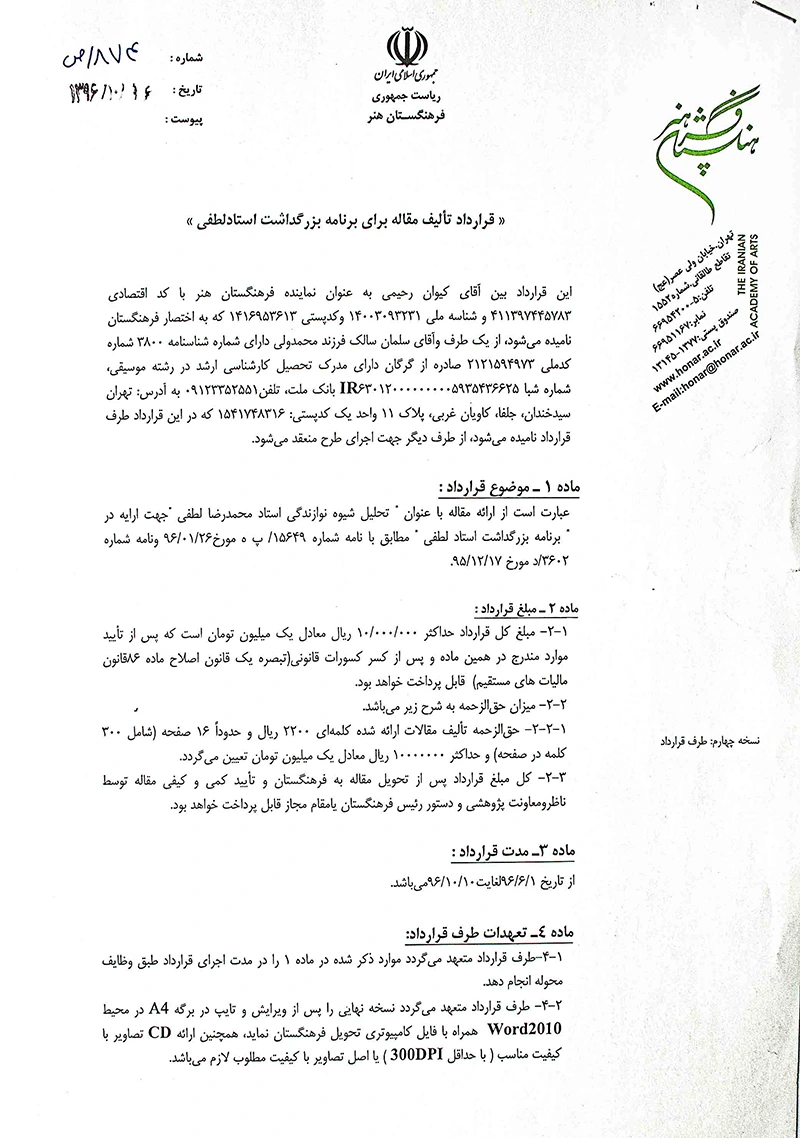 جمهوری اسلامی ایران
ریاست جمهوری
فرهنگستان هنر
شماره : ۸۷۴/ص
تاریخ : ۱۳۹۶/۱۰/۱۶
پیوست :
فرهنگستان هنر
THE IRANIAN
ACADEMY OF ARTS
تهران،خیابان ولی عصر(عج)
تقاطع طالقانی،شماره۱۵۵۲
تلفن:۵-۶۶۹۵۴۲۰۰
نمابر:۶۶۹۵۱۱۶۷
صندوق پستی:۱۳۷۷-۱۳۱۴۵
www.honar.ac.ir
E-mail:honar@honar.ac.ir
« قرارداد تألیف مقاله برای برنامه بزرگداشت استادلطفی »
این قرارداد بین آقای کیوان رحیمی به عنوان نماینده فرهنگستان هنر با کد اقتصادی
۴۱۱۳۹۷۴۴۵۷۸۳ و شناسه ملی ۱۴۰۰۳۰۹۳۲۳۱ وکدپستی ۱۴۱۶۹۵۳۶۱۳ که به اختصار فرهنگستان
نامیده می‌شود، از یک طرف وآقای سلمان سالک فرزند محمدولی دارای شماره شناسنامه ۳۸۰۰ شماره
کدملی ۲۱۲۱۵۹۴۹۷۳ صادره از گرگان دارای مدرک تحصیل کارشناسی ارشد در رشته موسیقی،
شماره شبا IR۶۳۰۱۲۰۰۰۰۰۰۰۰۰۵۹۳۵۴۳۶۶۲۵ بانک ملت، تلفن۰۹۱۲۳۳۵۲۵۵۱ به آدرس: تهران
سیدخندان، جلفا، کاویان غربی، پلاک ۱۱ واحد یک کدپستی: ۱۵۴۱۷۴۸۳۱۶ که در این قرارداد طرف
قرارداد نامیده می‌شود، از طرف دیگر جهت اجرای طرح منعقد می‌شود.
ماده ۱ ـ موضوع قرارداد :
عبارت است از ارائه مقاله با عنوان " تحلیل شیوه نوازندگی استاد محمدرضا لطفی "جهت ارایه در
" برنامه بزرگداشت استاد لطفی " مطابق با نامه شماره ۱۵۶۴۹/ پ ه مورخ۹۶/۰۱/۲۶ ونامه شماره
۳۶۰۲/د مورخ ۹۵/۱۲/۱۷.
ماده ۲ ـ مبلغ قرارداد :
۲-۱- مبلغ کل قرارداد حداکثر ۱۰/۰۰۰/۰۰۰ ریال معادل یک میلیون تومان است که پس از تأیید
موارد مندرج در همین ماده و پس از کسر کسورات قانونی(تبصره یک قانون اصلاح ماده ۸۶قانون
مالیات های مستقیم) قابل پرداخت خواهد بود.
۲-۲- میزان حق‌الزحمه به شرح زیر می‌باشد.
۲-۲-۱- حق‌الزحمه تألیف مقالات ارائه شده کلمه‌ای ۲۲۰۰ ریال و حدوداً ۱۶ صفحه (شامل ۳۰۰
کلمه در صفحه) و حداکثر ۱۰۰۰۰۰۰۰ ریال معادل یک میلیون تومان تعیین می‌گردد.
۲-۳- کل مبلغ قرارداد پس از تحویل مقاله به فرهنگستان و تأیید کمی و کیفی مقاله توسط
ناظرومعاونت پژوهشی و دستور رئیس فرهنگستان یامقام مجاز قابل پرداخت خواهد بود.
نسخه چهارم: طرف قرارداد
ماده ۳ـ مدت قرارداد :
از تاریخ ۹۶/۶/۱لغایت۹۶/۱۰/۱۰می‌باشد.
ماده ٤ـ تعهدات طرف قرارداد:
۴-۱-طرف قرارداد متعهد می‌گردد موارد ذکر شده در ماده ۱ را در مدت اجرای قرارداد طبق وظایف
محوله انجام دهد.
۴-۲- طرف قرارداد متعهد می‌گردد نسخه نهایی را پس از ویرایش و تایپ در برگه A4 در محیط
Word2010 همراه با فایل کامپیوتری تحویل فرهنگستان نماید، همچنین ارائه CD تصاویر با
کیفیت مناسب ( با حداقل 300DPI ) یا اصل تصاویر با کیفیت مطلوب لازم می‌باشد.